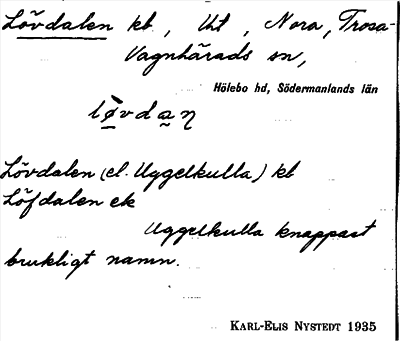 Lövdalen kb, Uht, Nora, Trosa-
Vagnhärads sn,
Hölebo hd, Södermanlands län
lø̀vdaṉ
Lövdalen (el. Uggelkulla) kb
Löfdalen ek
Uggelkulla knappast
brukligt namn.
KARL-ELIS NYSTEDT 1935